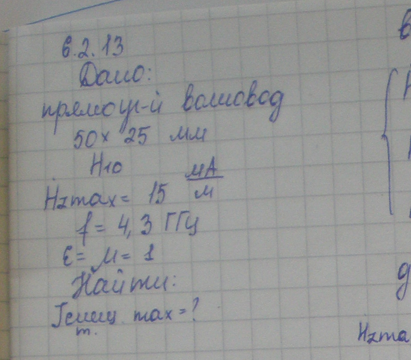 6.2.13
Дано:
прямоуг-й волновод
50 × 25 мм
H10
Hzmax = 15 мА/м
f = 4,3 ГГц
ε = μ = 1
Найти:
max = ?
Hzma